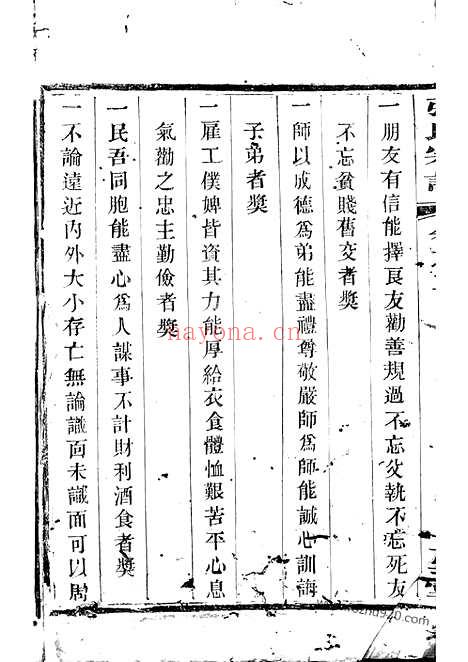 張氏宗譜
一朋友有信能擇良友勸善規過不忘父執不忘死友
不忘貧賤舊交者獎
一師以成德為弟能盡禮尊敬嚴師為師能誠心訓誨
子弟者獎
一雇工僕婢皆資其力能厚給衣食體恤艱苦平心息
氣勸之忠主勤儉者獎
一民吾同胞能盡心為人謀事不計財利酒食者獎
一不論遠近內外大小存亡無論識面未識面可以周
hayona.cn